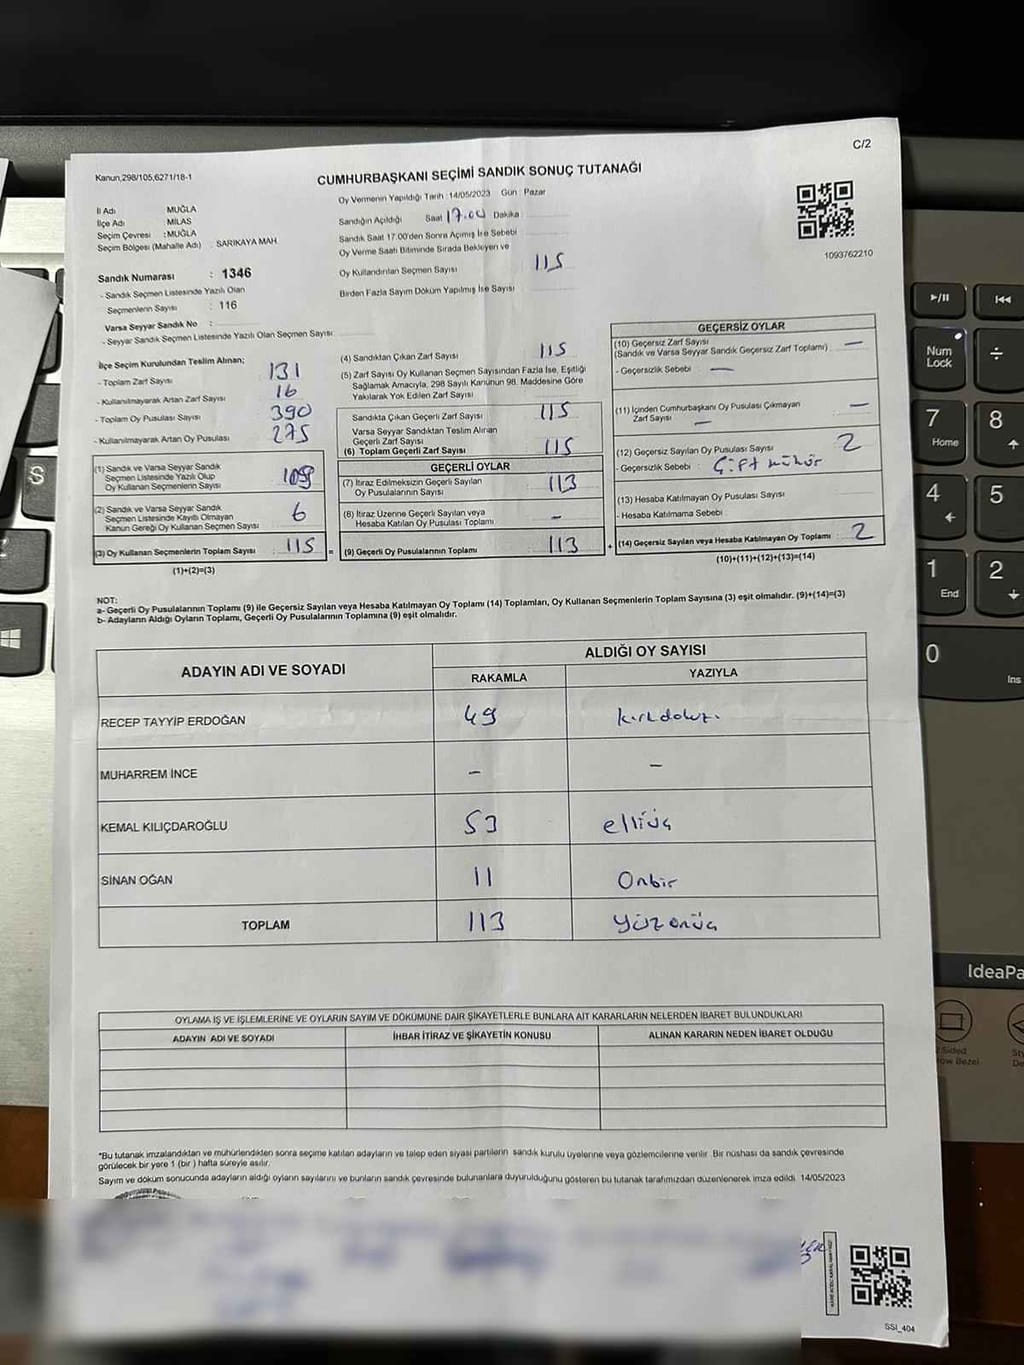 C/2
Kanun,298/105,6271/18-1
CUMHURBAŞKANI SEÇİMİ SANDIK SONUÇ TUTANAĞI
İl Adı : MUĞLA
İlçe Adı : MİLAS
Seçim Çevresi : MUĞLA
Seçim Bölgesi (Mahalle Adı) : SARIKAYA MAH.
Sandık Numarası : 1346
- Sandık Seçmen Listesinde Yazılı Olan
Seçmenlerin Sayısı : 116
Varsa Seyyar Sandık No :
- Seyyar Sandık Seçmen Listesinde Yazılı Olan Seçmen Sayısı:
Oy Vermenin Yapıldığı Tarih :14/05/2023 Gün : Pazar
Sandığın Açıldığı Saat 17.00 Dakika
Sandık Saat 17.00'den Sonra Açımış İse Sebebi
Oy Verme Saati Bitiminde Sırada Bekleyen ve
Oy Kullandırılan Seçmen Sayısı 115
Birden Fazla Sayım Döküm Yapılmış İse Sayısı
1093762210
İlçe Seçim Kurulundan Teslim Alınan;
- Toplam Zarf Sayısı 131
- Kullanılmayarak Artan Zarf Sayısı 16
- Toplam Oy Pusulası Sayısı 390
- Kullanılmayarak Artan Oy Pusulası 275
(1) Sandık ve Varsa Seyyar Sandık
Seçmen Listesinde Yazılı Olup
Oy Kullanan Seçmenlerin Sayısı 109
(2) Sandık ve Varsa Seyyar Sandık
Seçmen Listesinde Kayıtlı Olmayan
Kanun Gereği Oy Kullanan Seçmen Sayısı 6
(3) Oy Kullanan Seçmenlerin Toplam Sayısı 115 =
(1)+(2)=(3)
(4) Sandıktan Çıkan Zarf Sayısı 115
(5) Zarf Sayısı Oy Kullanan Seçmen Sayısından Fazla İse, Eşitliği
Sağlamak Amacıyla, 298 Sayılı Kanunun 98. Maddesine Göre
Yakılarak Yok Edilen Zarf Sayısı
Sandıkta Çıkan Geçerli Zarf Sayısı 115
Varsa Seyyar Sandıktan Teslim Alınan
Geçerli Zarf Sayısı
(6) Toplam Geçerli Zarf Sayısı 115
GEÇERLİ OYLAR
(7) İtiraz Edilmeksizin Geçerli Sayılan
Oy Pusulalarının Sayısı 113
(8) İtiraz Üzerine Geçerli Sayılan veya
Hesaba Katılan Oy Pusulası Toplamı -
(9) Geçerli Oy Pusulalarının Toplamı 113 +
GEÇERSİZ OYLAR
(10) Geçersiz Zarf Sayısı -
(Sandık ve Varsa Seyyar Sandık Geçersiz Zarf Toplamı)
- Geçersizlik Sebebi : -
(11) İçinden Cumhurbaşkanı Oy Pusulası Çıkmayan -
Zarf Sayısı -
(12) Geçersiz Sayılan Oy Pusulası Sayısı 2
- Geçersizlik Sebebi : Çift mühür
(13) Hesaba Katılmayan Oy Pusulası Sayısı
- Hesaba Katılmama Sebebi
(14) Geçersiz Sayılan veya Hesaba Katılmayan Oy Toplamı : 2
(10)+(11)+(12)+(13)=(14)
NOT:
a- Geçerli Oy Pusulalarının Toplamı (9) ile Geçersiz Sayılan veya Hesaba Katılmayan Oy Toplamı (14) Toplamları, Oy Kullanan Seçmenlerin Toplam Sayısına (3) eşit olmalıdır. (9)+(14)=(3)
b- Adayların Aldığı Oyların Toplamı, Geçerli Oy Pusulalarının Toplamına (9) eşit olmalıdır.
ADAYIN ADI VE SOYADI
ALDIĞI OY SAYISI
RAKAMLA YAZIYLA
RECEP TAYYİP ERDOĞAN 49 kırkdokuz.
MUHARREM İNCE - -
KEMAL KILIÇDAROĞLU 53 elliüç
SİNAN OĞAN 11 Onbir
TOPLAM 113 Yüzonüç
OYLAMA İŞ VE İŞLEMLERİNE VE OYLARIN SAYIM VE DÖKÜMÜNE DAİR ŞİKAYETLERLE BUNLARA AİT KARARLARIN NELERDEN İBARET BULUNDUKLARI
ADAYIN ADI VE SOYADI İHBAR İTİRAZ VE ŞİKAYETİN KONUSU ALINAN KARARIN NEDEN İBARET OLDUĞU
*Bu tutanak imzalandıktan ve mühürlendikten sonra seçime katılan adayların ve talep eden siyasi partilerin sandık kurulu üyelerine veya gözlemcilerine verilir. Bir nüshası da sandık çevresinde
görülecek bir yere 1 (bir) hafta süreyle asılır.
Sayım ve döküm sonucunda adayların aldığı oyların sayılarını ve bunların sandık çevresinde bulunanlara duyurulduğunu gösteren bu tutanak tarafımızdan düzenlenerek imza edildi. 14/05/2023
SSI_404
S
Num
Lock
÷
7
Home
8
4
5
1
End
2
0
Ins
IdeaPa